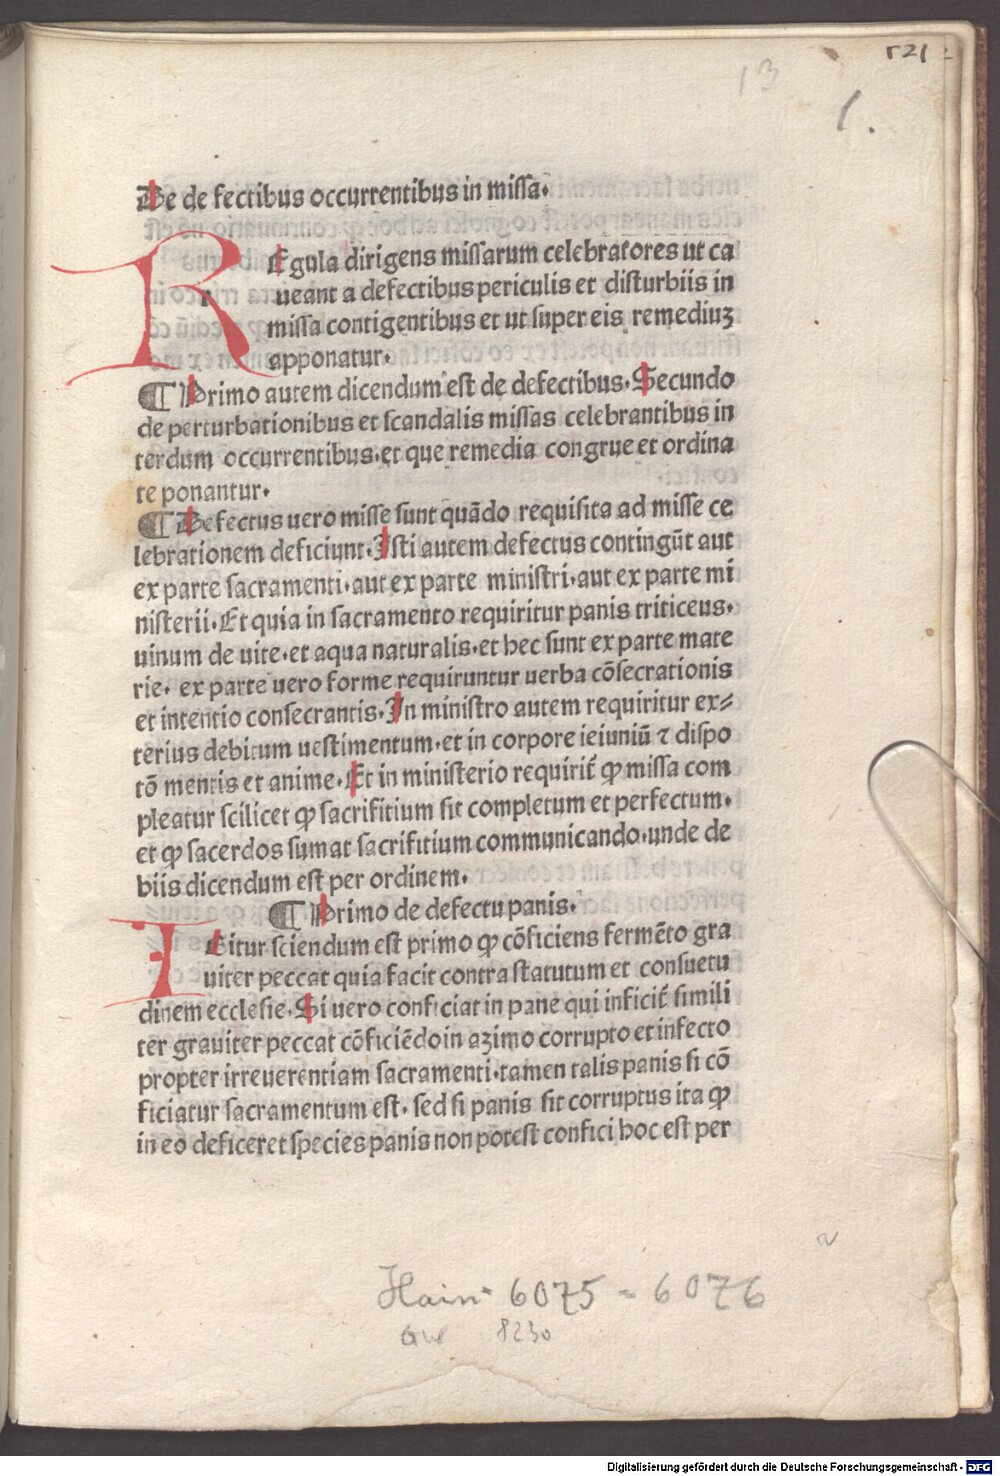 521
13
1.
De de fectibus occurrentibus in missa.
REgula dirigens missarum celebratores ut ca
ueant a defectibus periculis et disturbiis in
missa contigentibus et ut super eis remediuʒ
apponatur.
¶ Primo autem dicendum est de defectibus. Secundo
de perturbationibus et scandalis missas celebrantibus in
terdum occurrentibus. et que remedia congrue et ordina
te ponantur.
¶ Defectus uero misse sunt quãdo requisita ad misse ce
lebrationem deficiunt. Isti autem defectus contingũt aut
ex parte sacramenti. aut ex parte ministri. aut ex parte mi
nisterii. Et quia in sacramento requiritur panis triticeus.
uinum de uite. et aqua naturalis. et hec sunt ex parte mate
rie. ex parte uero forme requiruntur uerba cõsecrationis
et intentio consecrantis. In ministro autem requiritur ex⸗
terius debitum uestimentum. et in corpore ieiuniũ ⁊ dispo
tõ mentis et anime. Et in ministerio requirit̃ ꝙ missa com
pleatur scilicet ꝙ sacrifitium sit completum et perfectum.
et ꝙ sacerdos sumat sacrifitium communicando. unde de
biis dicendum est per ordinem.
¶ Primo de defectu panis.
IGitur sciendum est primo ꝙ cõficiens fermẽto gra
uiter peccat quia facit contra statutum et consuetu
dinem ecclesie. Si uero conficiat in pane qui inficit̃ simili
ter grauiter peccat cõficiẽdo in aʒimo corrupto et infecto
propter irreuerentiam sacramenti. tamen talis panis si cõ
ficiatur sacramentum est. sed si panis sit corruptus ita ꝙ
in eo deficeret species panis non potest confici hoc est per
Hain 6075 = 6076
GW 8230
Digitalisierung gefördert durch die Deutsche Forschungsgemeinschaft - DFG